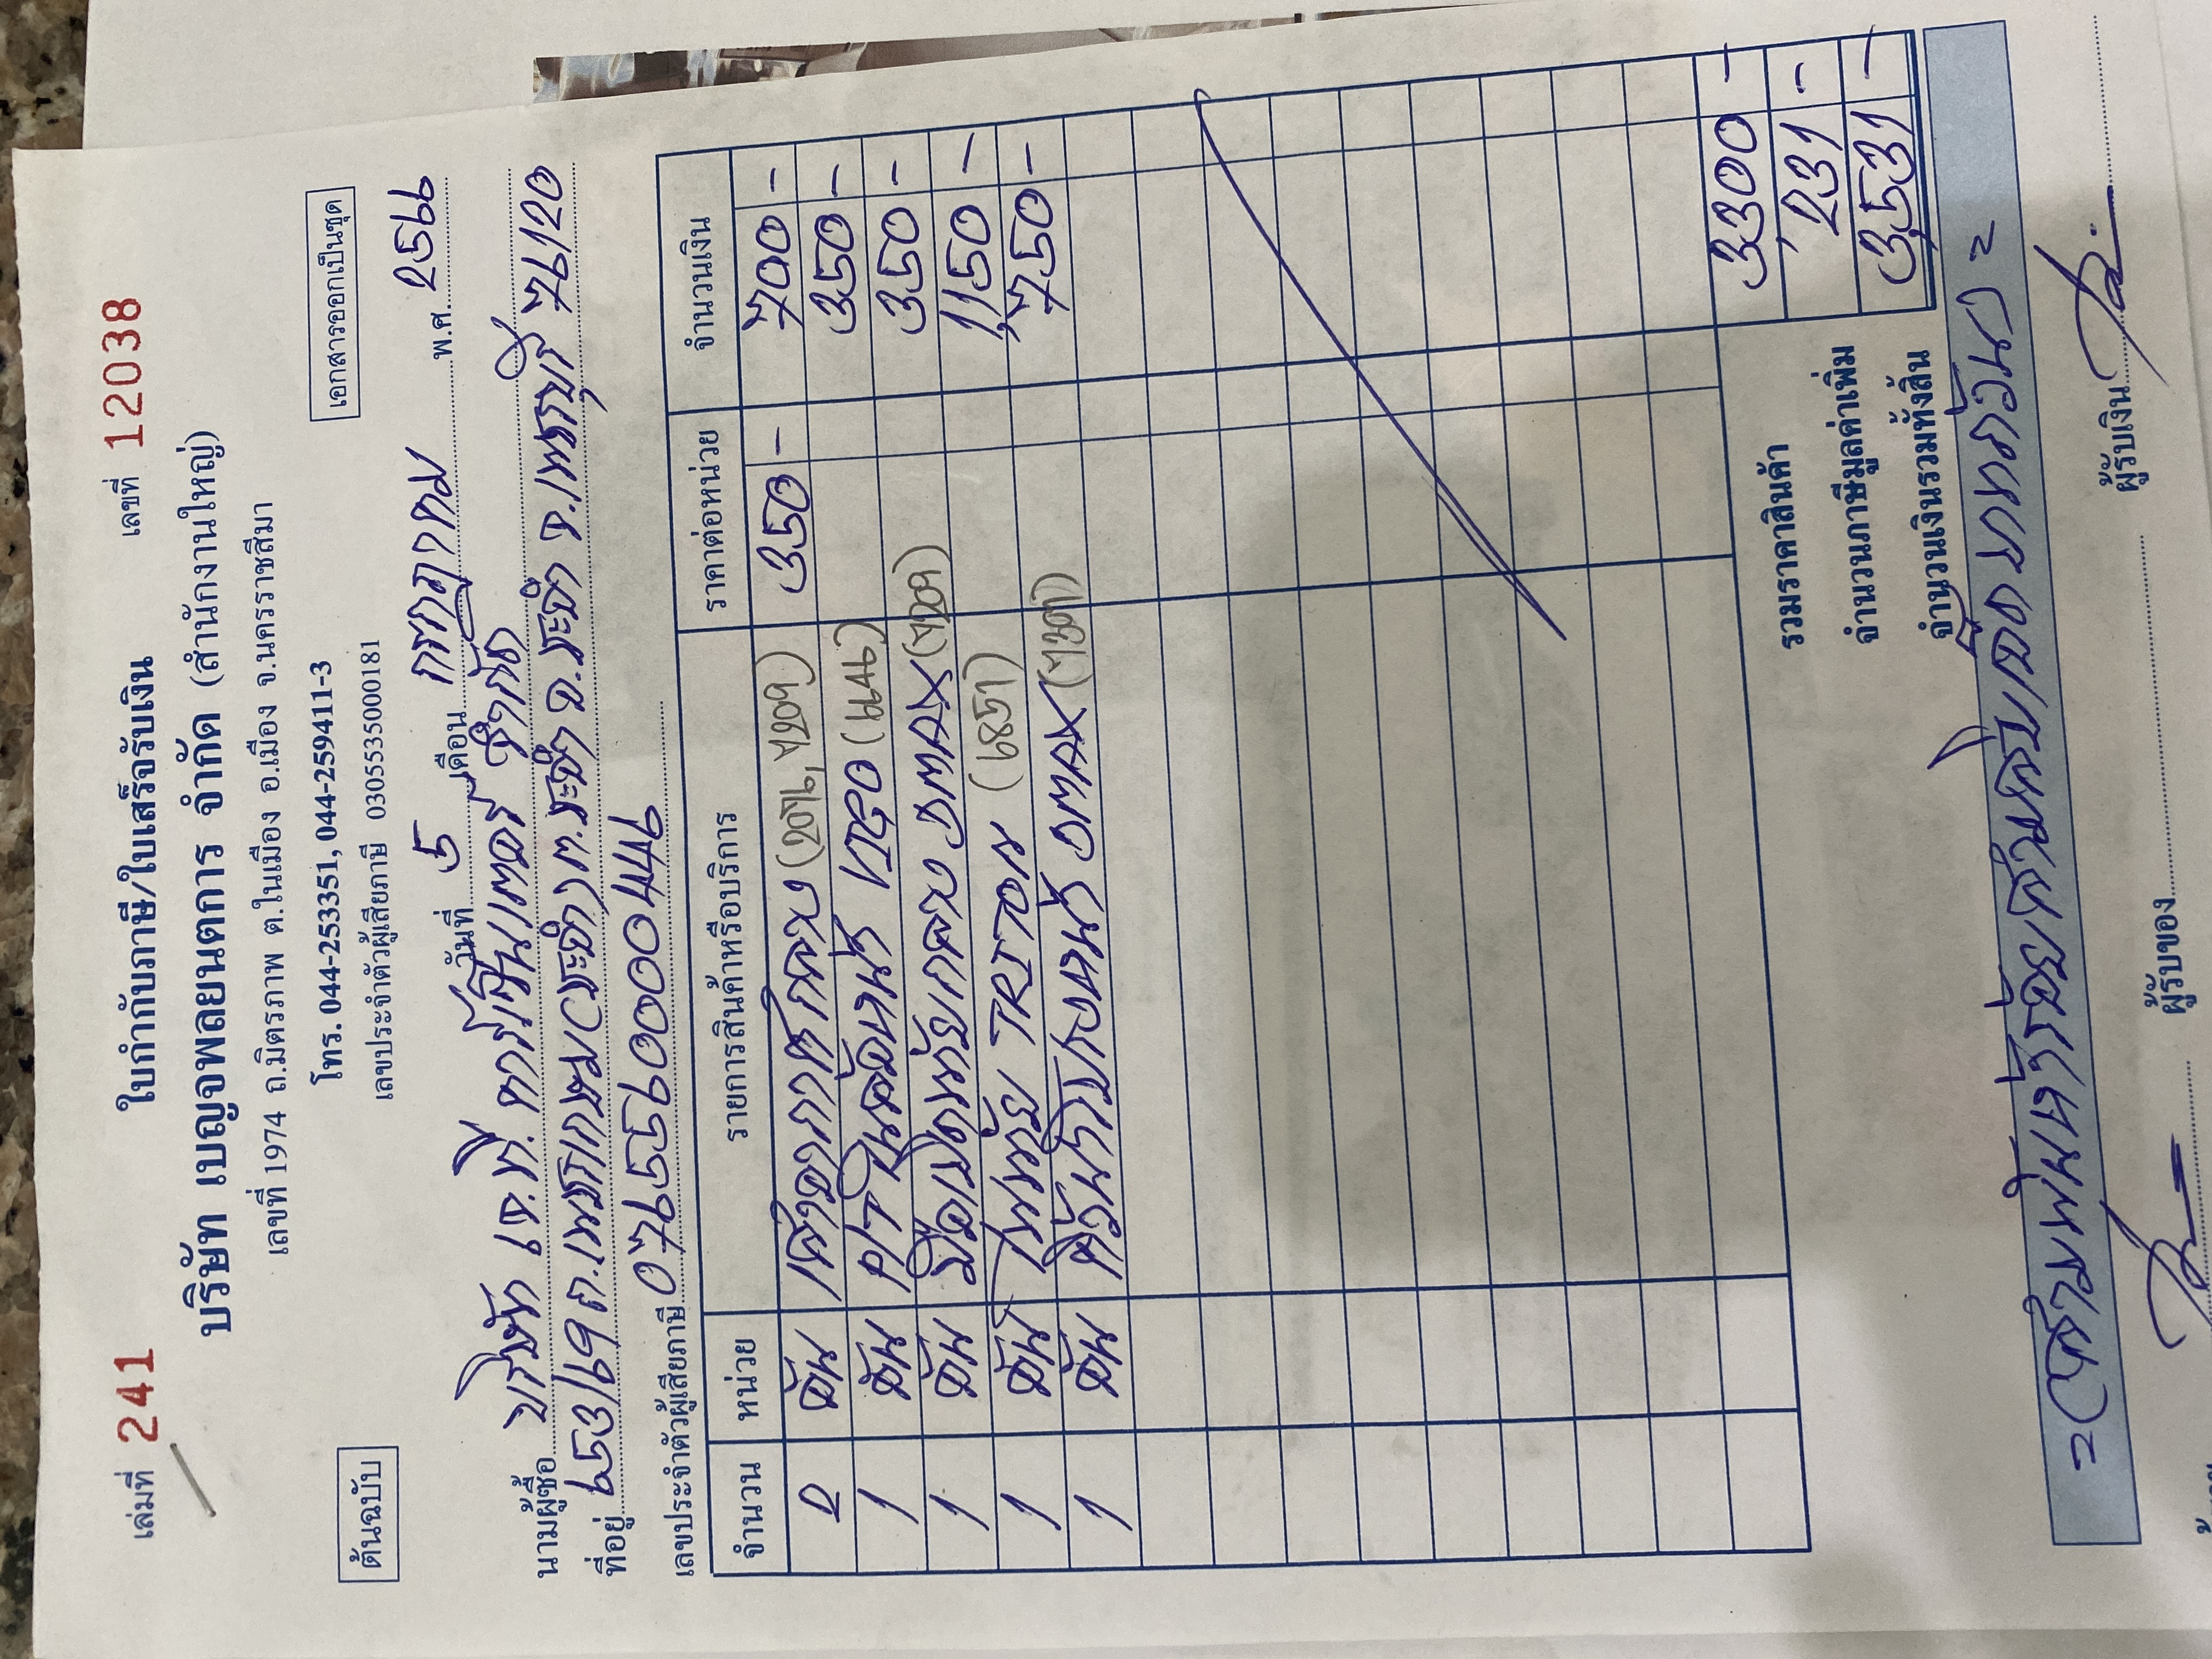 เล่มที่ 241 ใบกำกับภาษี/ใบเสร็จรับเงิน เลขที่ 12038
บริษัท เบญจพลยนตการ จำกัด (สำนักงานใหญ่)
เลขที่ 1974 ถ.มิตรภาพ ต.ในเมือง อ.เมือง จ.นครราชสีมา
ต้นฉบับ โทร. 044-253351, 044-259411-3 เอกสารออกเป็นชุด
เลขประจำตัวผู้เสียภาษี 0305535000181
วันที่ 5 เดือน กรกฎาคม พ.ศ. 2566
นามผู้ซื้อ บริษัท เจ.ที. คาร์เซ็นเตอร์ จำกัด
ที่อยู่ ถ.เพชรเกษม ต.ชะอำ อ.ชะอำ จ.เพชรบุรี 76120
เลขประจำตัวผู้เสียภาษี
จำนวน หน่วย รายการสินค้าหรือบริการ ราคาต่อหน่วย จำนวนเงิน
2 อัน 350 - 700 -
1 อัน VIGO 350 -
1 อัน DMAX 350 -
1 อัน TRITON (6851) 1,150 -
1 อัน DMAX 750 -
รวมราคาสินค้า 3300 -
จำนวนภาษีมูลค่าเพิ่ม 231 -
จำนวนเงินรวมทั้งสิ้น 3,531 -
=(สามพันห้าร้อยสามสิบเอ็ดบาทถ้วน)=
ผู้รับของ ผู้รับเงิน